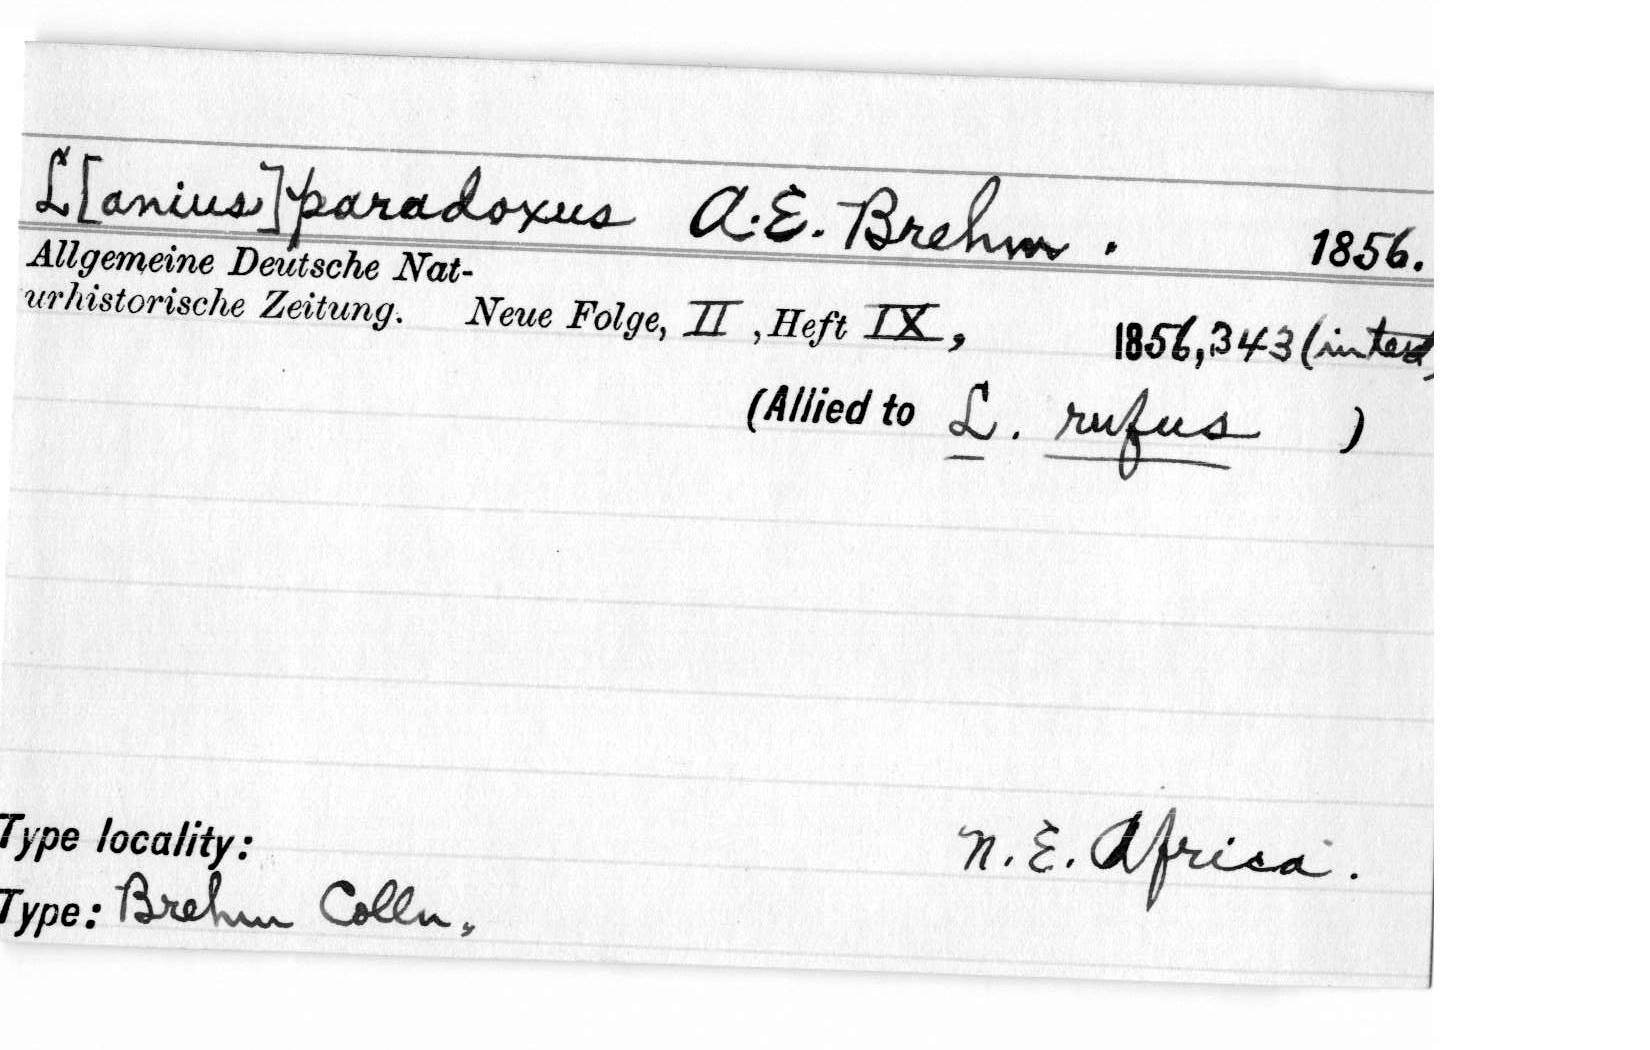 L[anius] paradoxus A.E. Brehm. 1856.
Allgemeine Deutsche Nat-
urhistorische Zeitung. Neue Folge, II, Heft IX, 1856, 343 (in text)
(Allied to L. rufus)
Type locality: N.E. Africa.
Type: Brehm Colln.